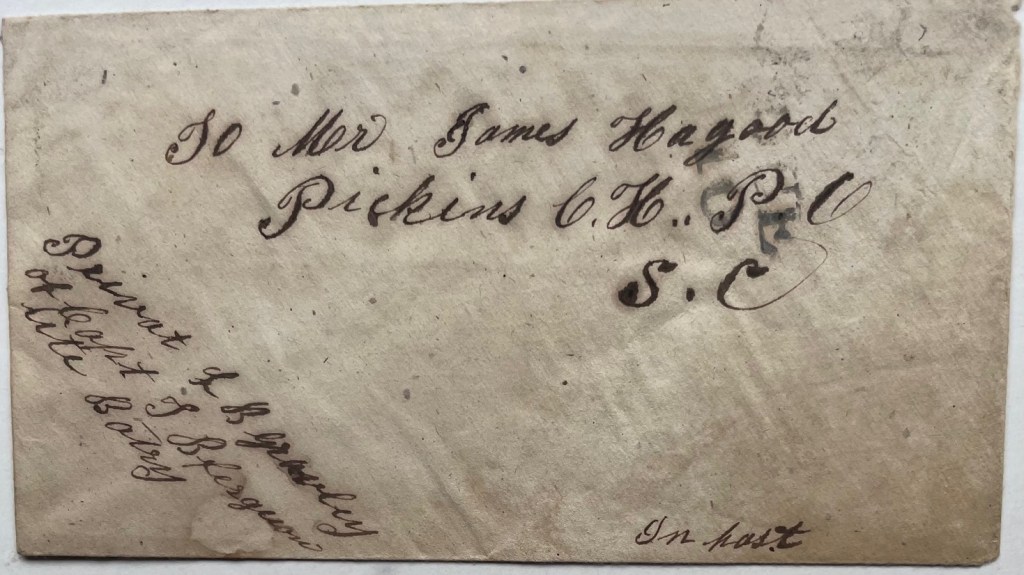 To Mr James Hagood
Pickins C.H.. P. O
S. C
Privat J B growley
of Capt T B ferguson
lite Batry
In hast